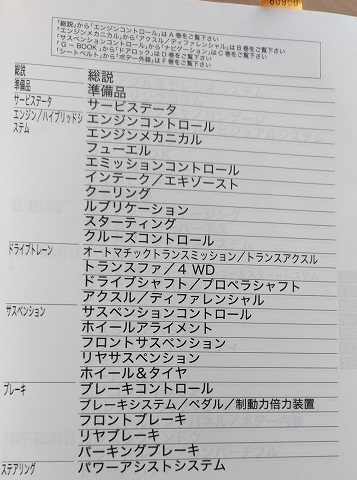 「総説」から「エンジンコントロール」はA巻をご覧下さい
「エンジンメカニカル」から「アクスル/ディファレンシャル」はB巻をご覧下さい
「サスペンションコントロール」から「ナビゲーション」はC巻をご覧下さい
「G-BOOK」から「ドアロック」はD巻をご覧下さい
「シートベルト」から「ボデー外装」はF巻をご覧下さい
総説 総説
準備品 準備品
サービスデータ サービスデータ
エンジン/ハイブリッドシステム エンジンコントロール
エンジンメカニカル
フューエル
エミッションコントロール
インテーク/エキゾースト
クーリング
ルブリケーション
スターティング
クルーズコントロール
ドライブトレーン オートマチックトランスミッション/トランスアクスル
トランスファ/4WD
ドライブシャフト/プロペラシャフト
アクスル/ディファレンシャル
サスペンション サスペンションコントロール
ホイールアライメント
フロントサスペンション
リヤサスペンション
ホイール&タイヤ
ブレーキ ブレーキコントロール
ブレーキシステム/ペダル/制動力倍力装置
フロントブレーキ
リヤブレーキ
パーキングブレーキ
ステアリング パワーアシストシステム